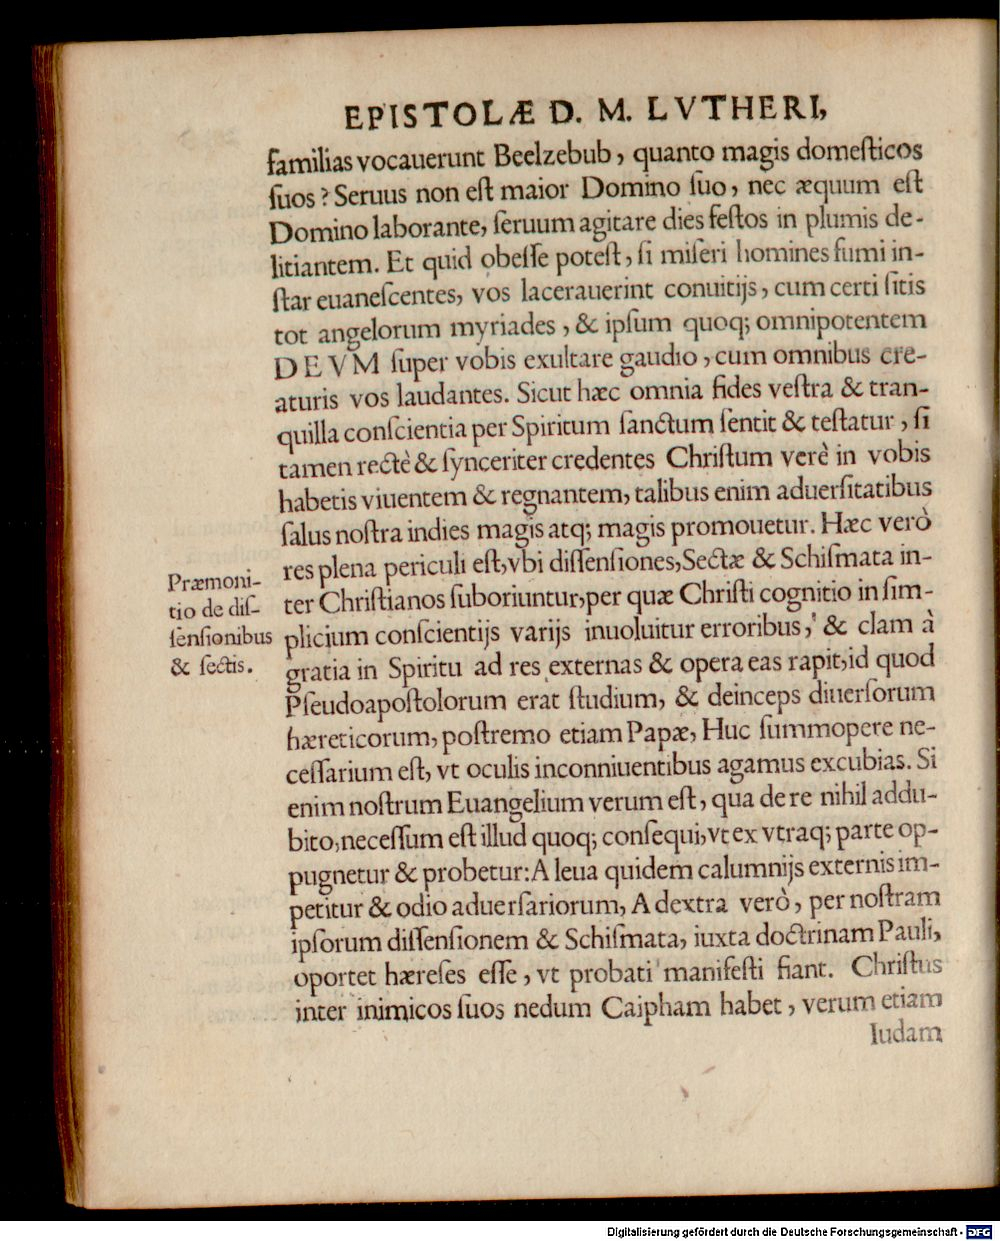 EPISTOLÆ D. M. LVTHERI,
familias vocauerunt Beelzebub, quanto magis domeſticos
ſuos? Seruus non eſt maior Domino ſuo, nec æquum eſt
Domino laborante, ſeruum agitare dies feſtos in plumis de-
litiantem. Et quid obeſſe poteſt, ſi miſeri homines fumi in-
ſtar euaneſcentes, vos lacerauerint conuitijs, cum certi ſitis
tot angelorum myriades, & ipſum quoq; omnipotentem
DEVM ſuper vobis exultare gaudio, cum omnibus cre-
aturis vos laudantes. Sicut hæc omnia fides veſtra & tran-
quilla conſcientia per Spiritum ſanctum ſentit & teſtatur, ſi
tamen rectè & ſynceriter credentes Chriſtum verè in vobis
habetis viuentem & regnantem, talibus enim aduerſitatibus
ſalus noſtra indies magis atq; magis promouetur. Hæc verò
res plena periculi eſt, vbi diſſenſiones, Sectæ & Schiſmata in-
ter Chriſtianos ſuboriuntur, per quæ Chriſti cognitio in ſim-
plicium conſcientijs varijs inuoluitur erroribus, & clam à
gratia in Spiritu ad res externas & opera eas rapit, id quod
Pſeudoapoſtolorum erat ſtudium, & deinceps diuerſorum
hæreticorum, poſtremo etiam Papæ, Huc ſummopere ne-
ceſſarium eſt, vt oculis inconniuentibus agamus excubias. Si
enim noſtrum Euangelium verum eſt, qua de re nihil addu-
bito, neceſſum eſt illud quoq; conſequi, vt ex vtraq; parte op-
pugnetur & probetur: A leua quidem calumnijs externis im-
petitur & odio aduerſariorum, A dextra verò, per noſtram
ipſorum diſſenſionem & Schiſmata, iuxta doctrinam Pauli,
oportet hæreſes eſſe, vt probati manifeſti fiant. Chriſtus
inter inimicos ſuos nedum Caipham habet, verum etiam
Iudam
Præmoni-
tio de diſ-
ſenſionibus
& ſectis.
Digitalisierung gefördert durch die Deutsche Forschungsgemeinschaft - DFG